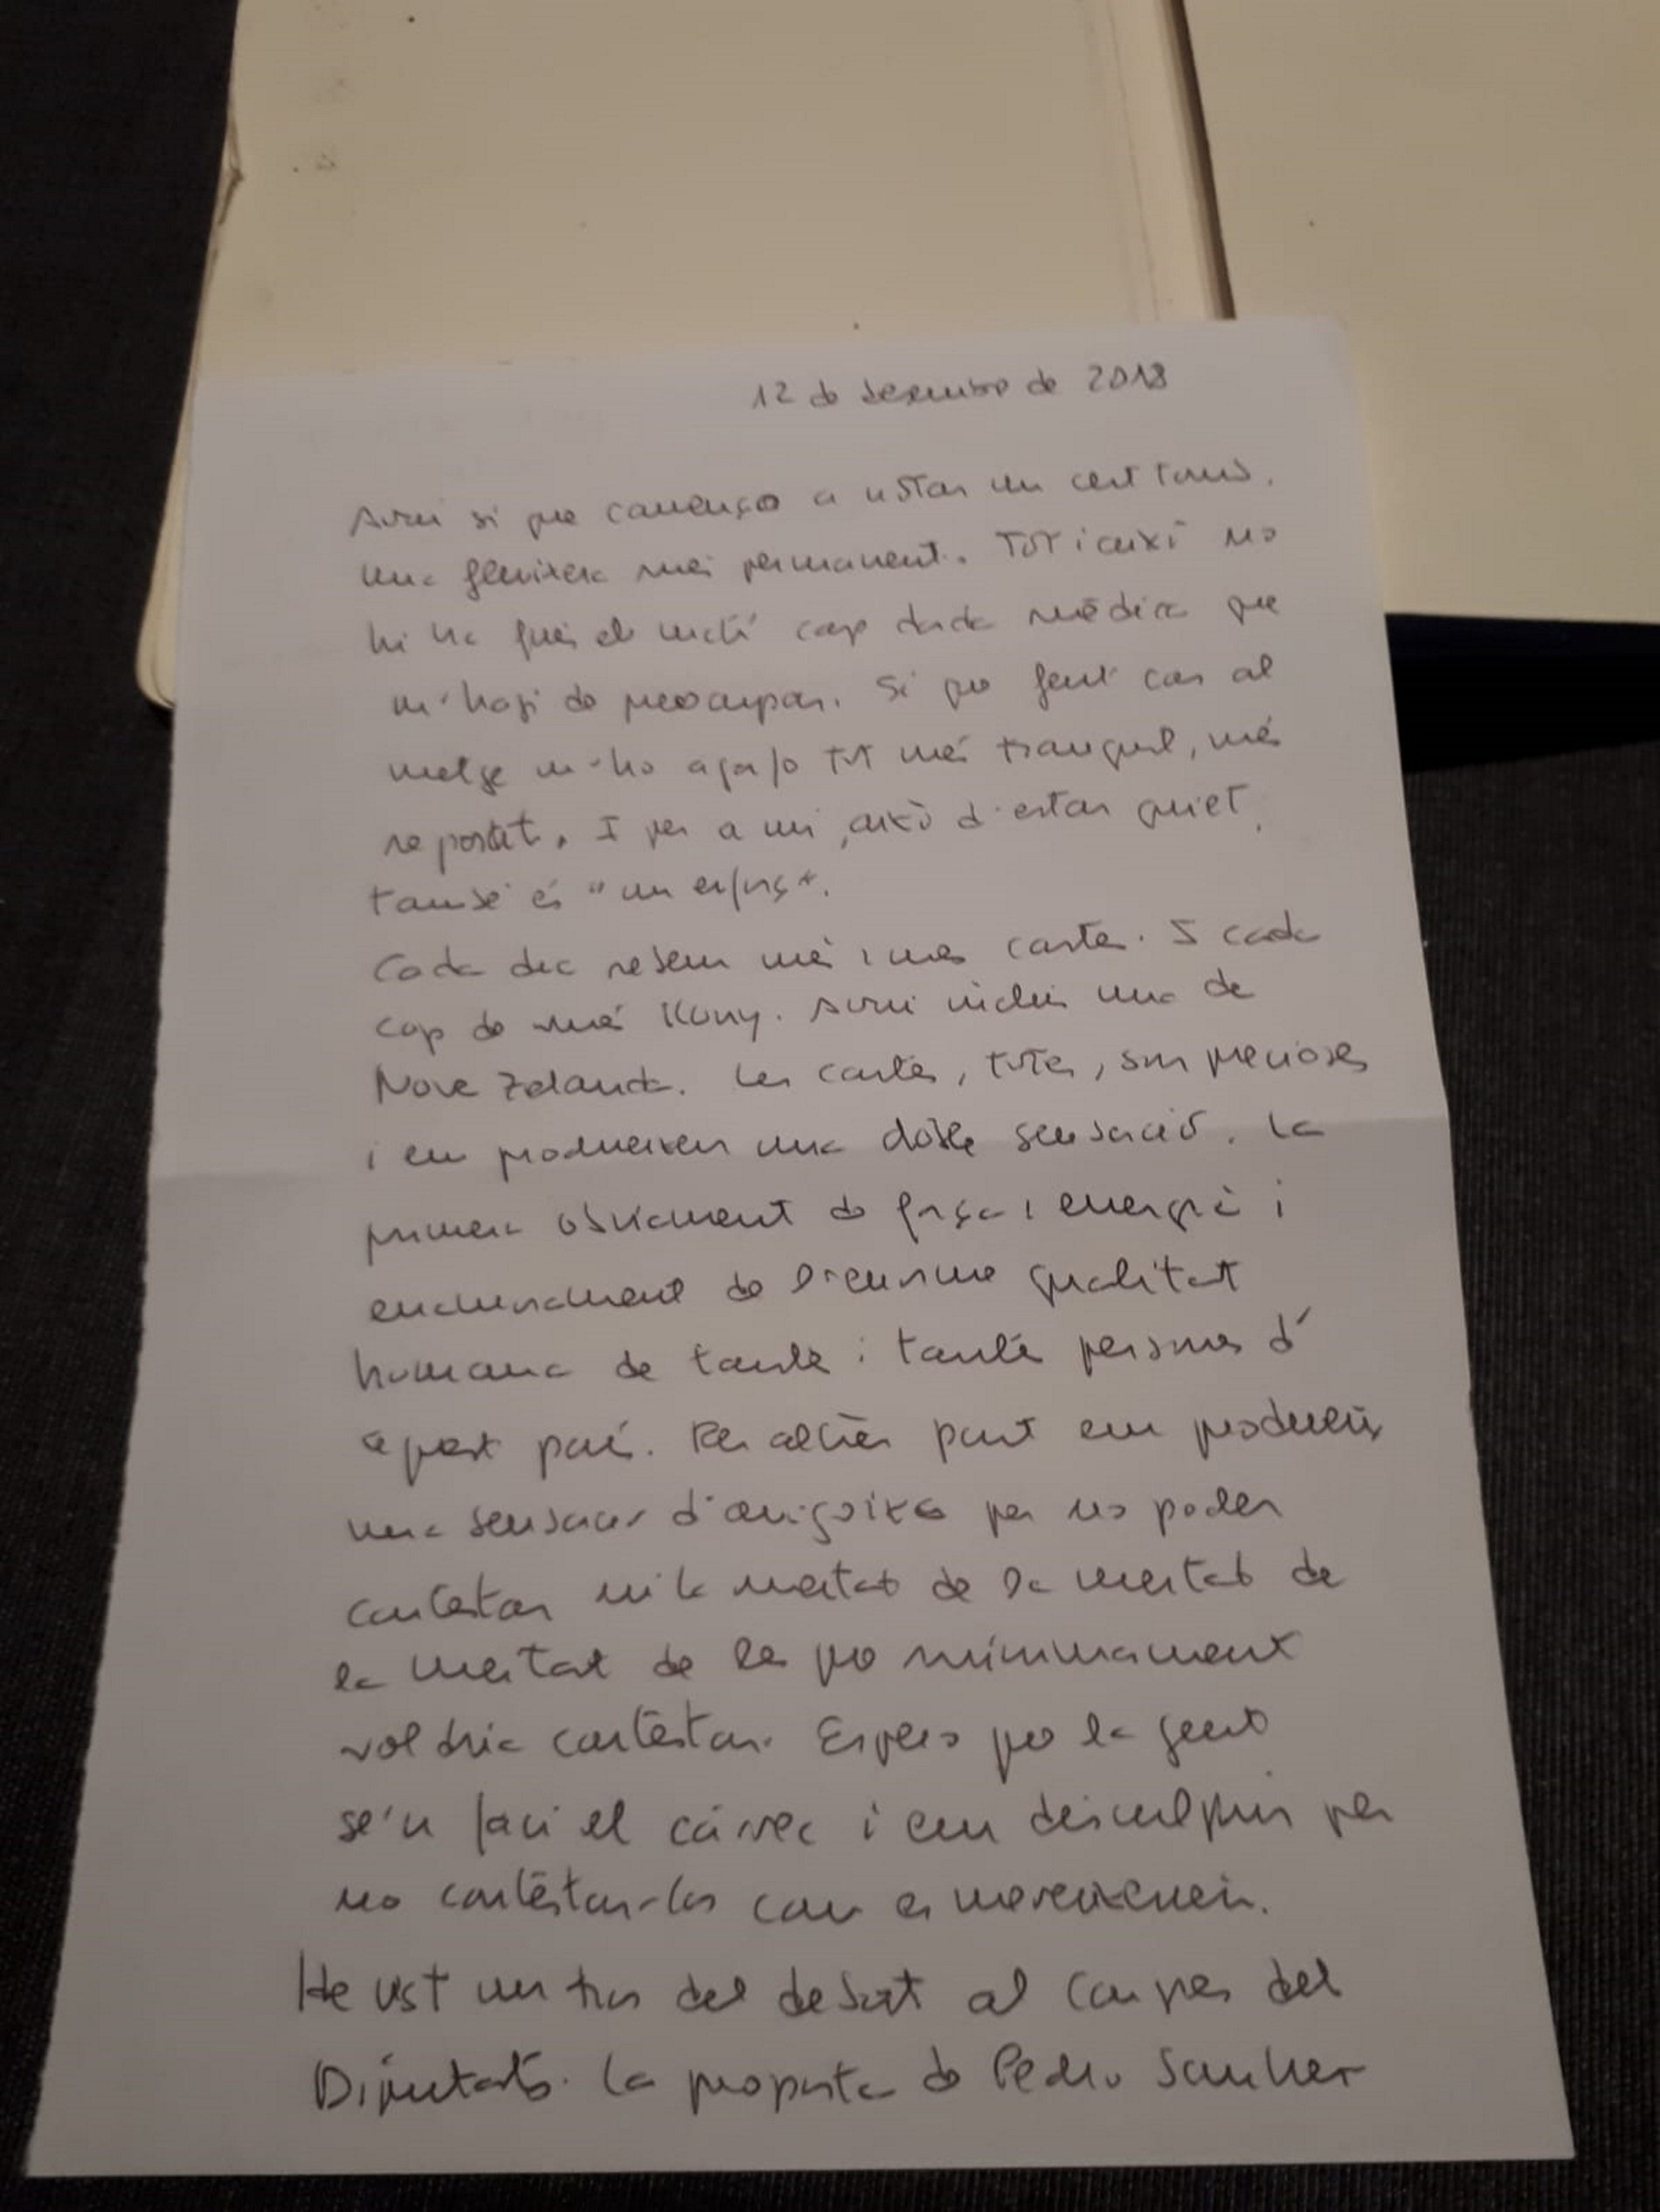 12 de desembre de 2018
Avui sí que començo a notar un cert
una fluixera més permanent. Tot i així no
hi ha fins al matí cap dada mèdica que
m'hagi de preocupar. Sí que fent cas al
metge m'ho agafo tot més tranquil, més
reposat. I per a mi, això d'estar quiet,
també és "un esforç".
Cada dia rebem més i més cartes. I cada
cop de més lluny. Avui inclús una de
Nova Zelanda. Les cartes, totes, son precioses
i em produeixen una doble sensació. La
primera obviament de força i energia i
de l'enorme qualitat
humana de tantes i tantes persones d'
aquest país. Per altres part em produeix
una sensació d'angoixa per no poder
contestar ni la meitat de la meitat de
la meitat de les que mínimament
voldria contestar. Espero que la gent
se'n faci el càrrec i em disculpin per
no contestar-los com es mereixerien.
He vist un tros del debat al Congres del
Diputats. La proposta de Pedro Sanchez